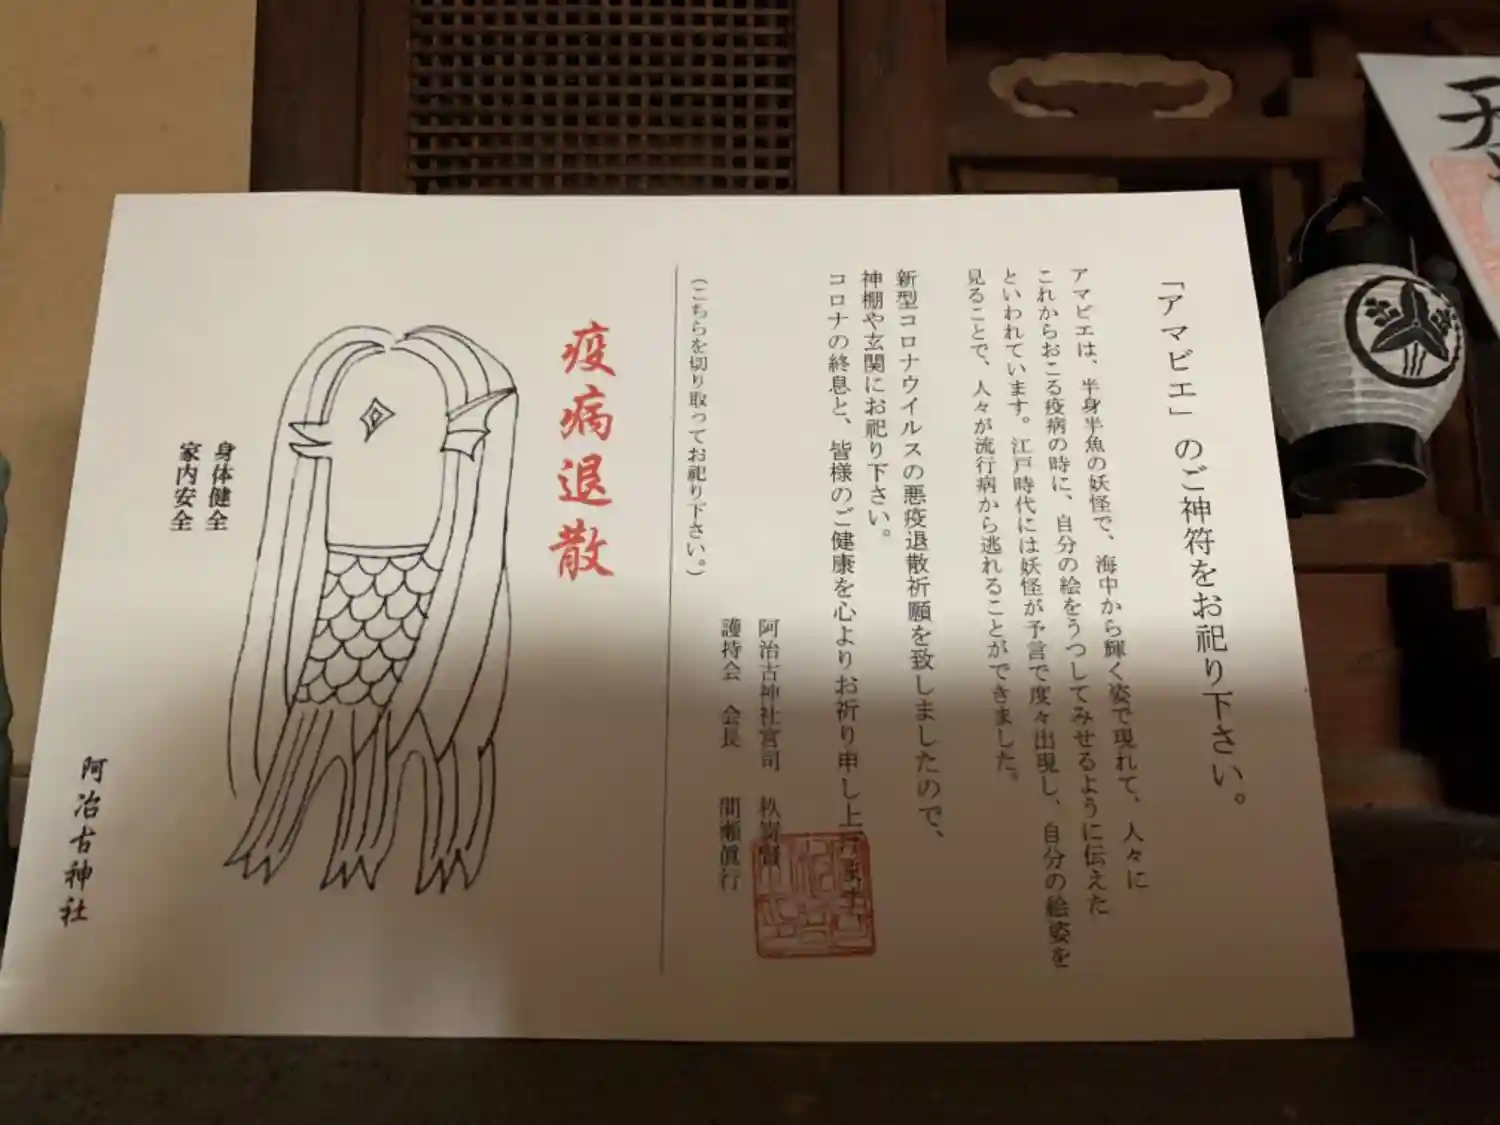 「アマビエ」のご神符をお祀り下さい。
アマビエは、半身半魚の妖怪で、海中から輝く姿で現れて、人々に
これからおこる疫病の時に、自分の絵をうつしてみせるように伝えた
といわれています。江戸時代には妖怪が予言で度々出現し、自分の絵姿を
見ることで、人々が流行病から逃れることができました。
新型コロナウイルスの悪疫退散祈願を致しましたので、
神棚や玄関にお祀り下さい。
コロナの終息と、皆様のご健康を心よりお祈り申し上げます
阿治古神社宮司
護持会 会長 間瀬眞行
(こちらを切り取ってお祀り下さい。)
疫病退散
身体健全
家内安全
阿治古神社